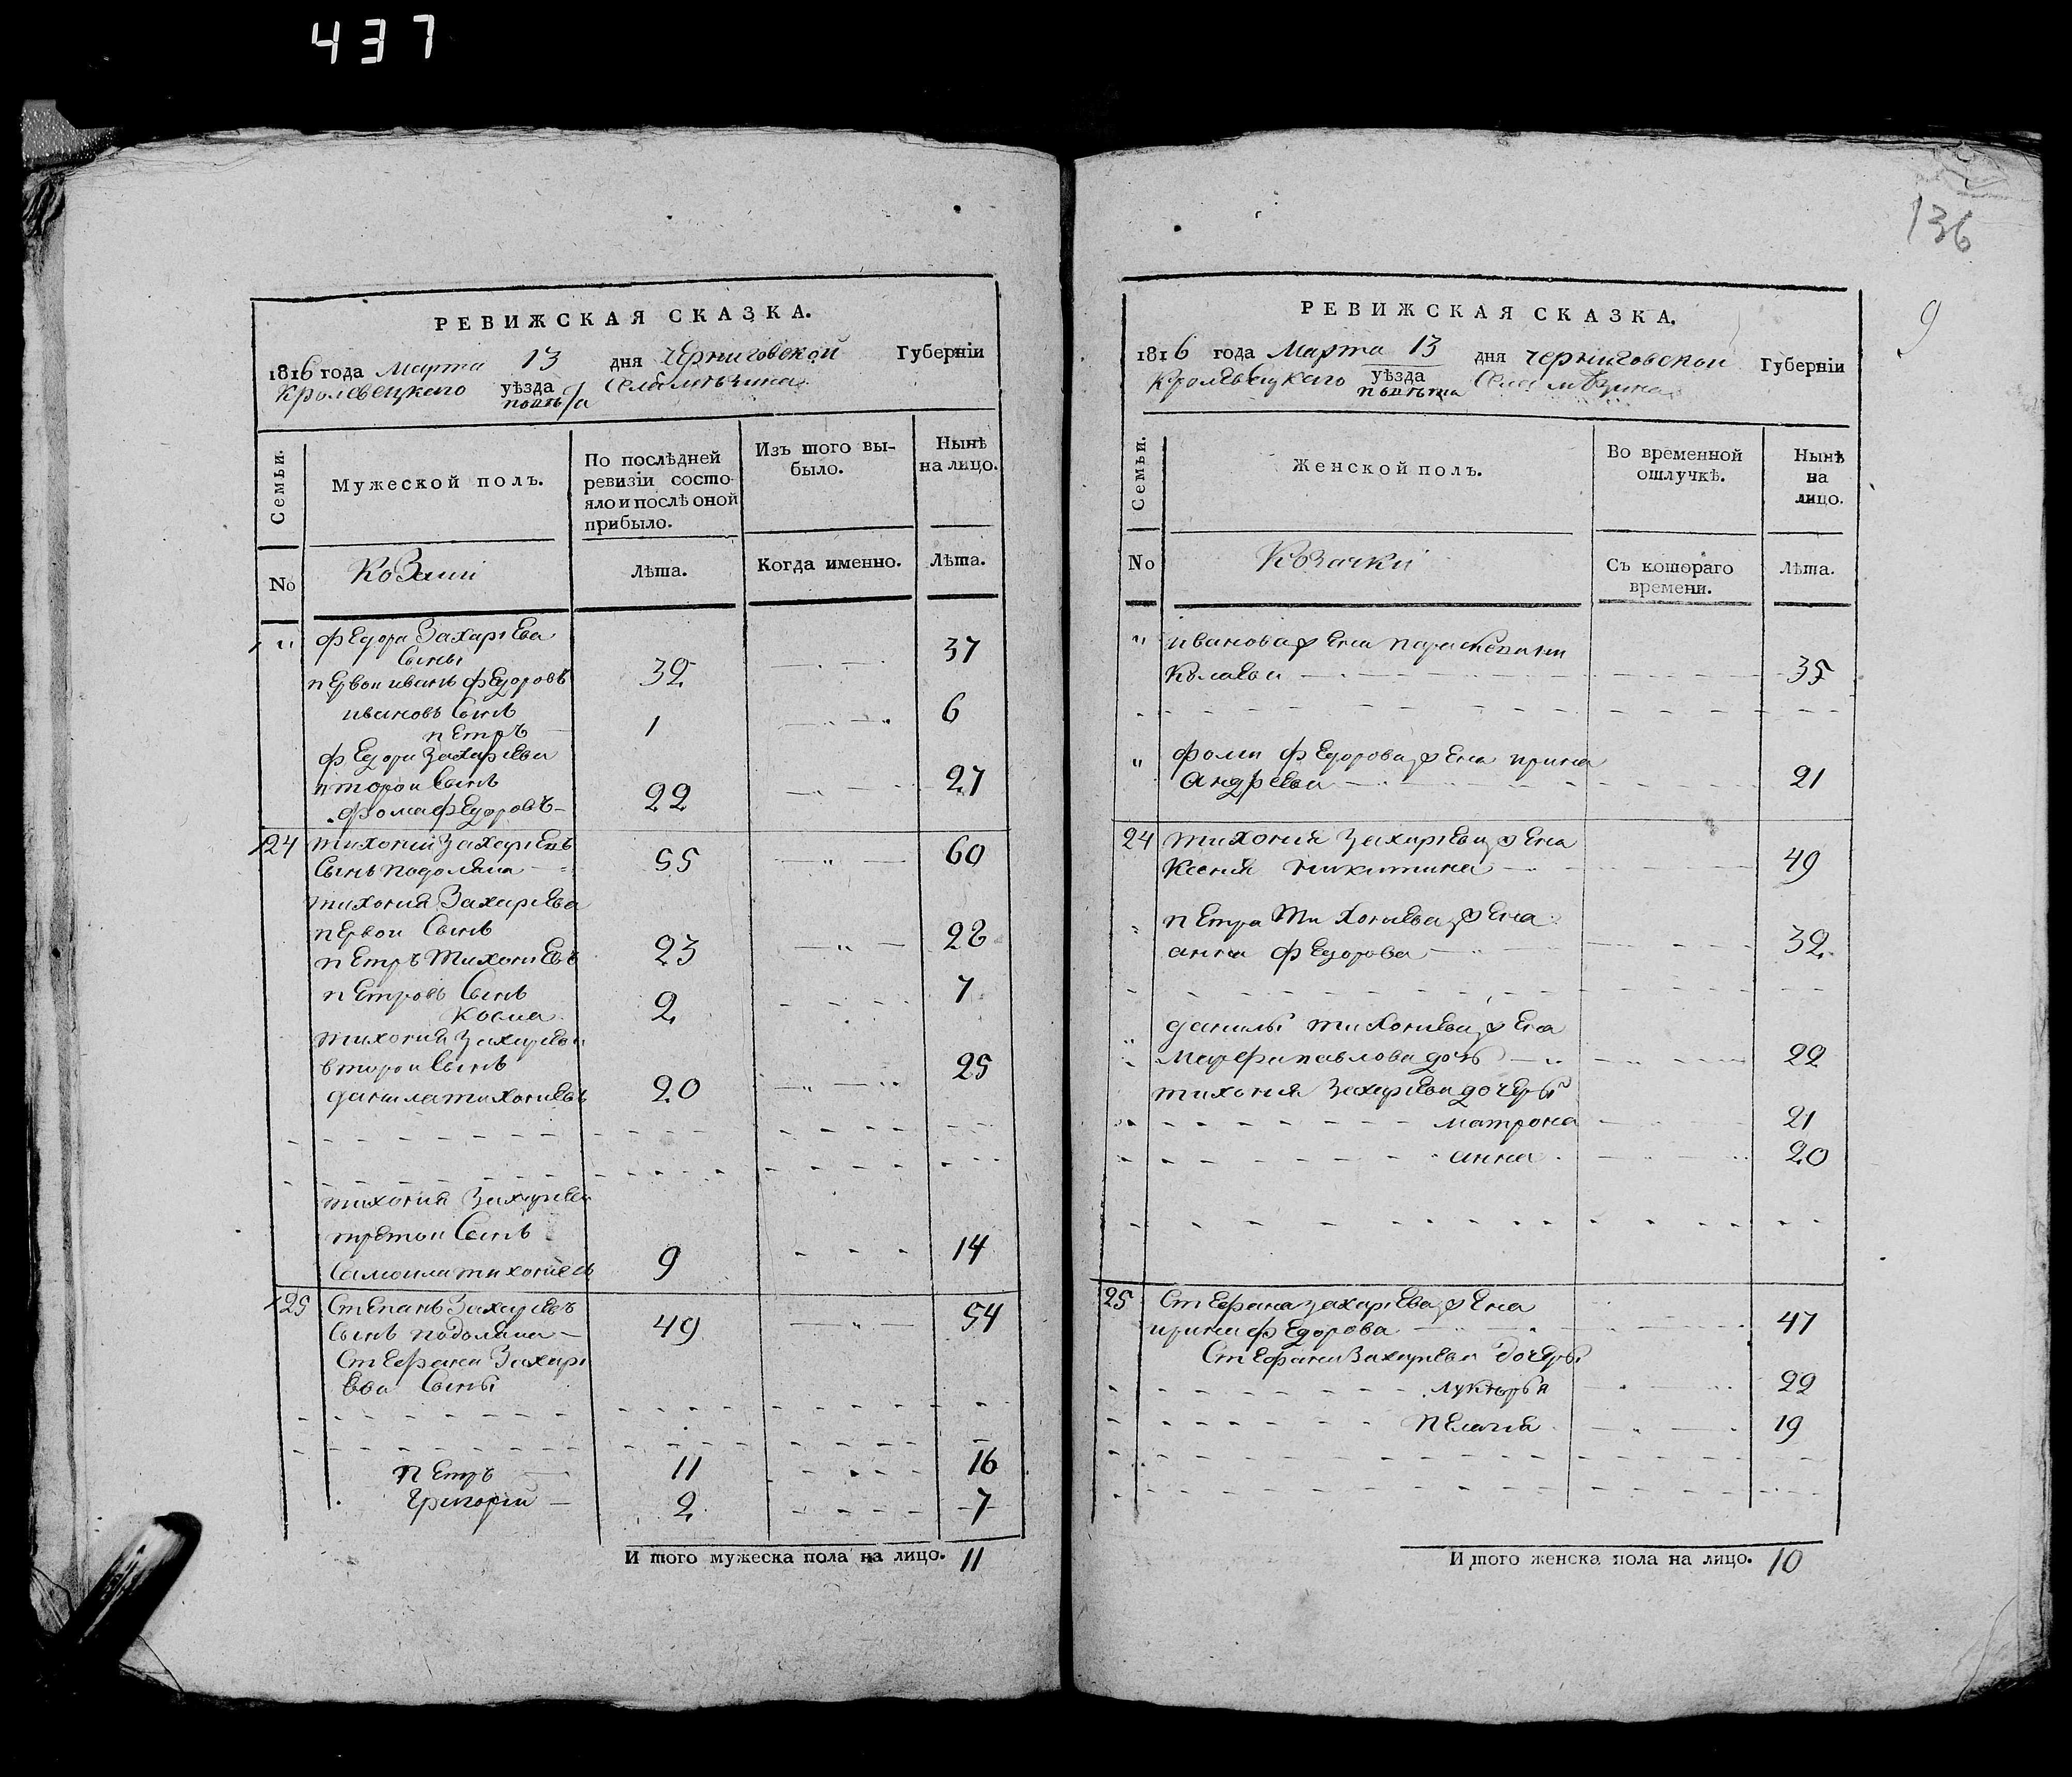 437
РЕВИЖСКАЯ СКАЗКА.
1816 года Марта 13 дня Черниговской Губерніи
Кролевецкого уѣзда Села
повѣта
Семьи.
Мужеской полъ.
По послѣдней ревизіи состояло и послѣ оной прибыло.
Изъ того выбыло.
Нынѣ на лицо.
№
Козаки
Лѣта.
Когда именно.
Лѣта.
" Федора Захариева
сыны
первои иванъ федоровъ 32 37
ивановъ сынъ
петръ 1 6
федора Захариева
второи сынъ
фома федоровъ 22 27
124 тихоний Захариевъ
сынъ подоляка 55 60
тихония Захариева
первои сынъ
петръ тихониевъ 23 28
петровъ сынъ
косма 2 7
тихония Захариева
второи сынъ
данила тихониевъ 20 25
тихония Захариева
третои сынъ
самоила тихониевъ 9 14
125 Степанъ Захариевъ
сынъ подоляка 49 54
Стефана Захари
ева сыны
петръ 11 16
Григорий 2 7
И того мужеска пола на лицо. 11
136
9
РЕВИЖСКАЯ СКАЗКА.
1816 года Марта 13 дня Черниговской Губерніи
Кролевецкого уѣзда Села
повѣта
Семьи.
Женской полъ.
Во временной отлучкѣ.
Нынѣ на лицо.
№
Козачки
Съ котораго времени.
Лѣта.
" иванова жена
35
" фомы федорова жена ирина
андреева 21
24 тихония Захариева жена
Ксения никитина 49
петра тихониева жена
анна федорова 32
данилы тихониева жена
Марфа павлова дочь 22
тихония Захариева дочеры
матрона 21
анна 20
25 Стефана захариева жена
ирина федорова 47
Стефана Захариева дочеры
лукерья 22
пелагия 19
И того женска пола на лицо. 10